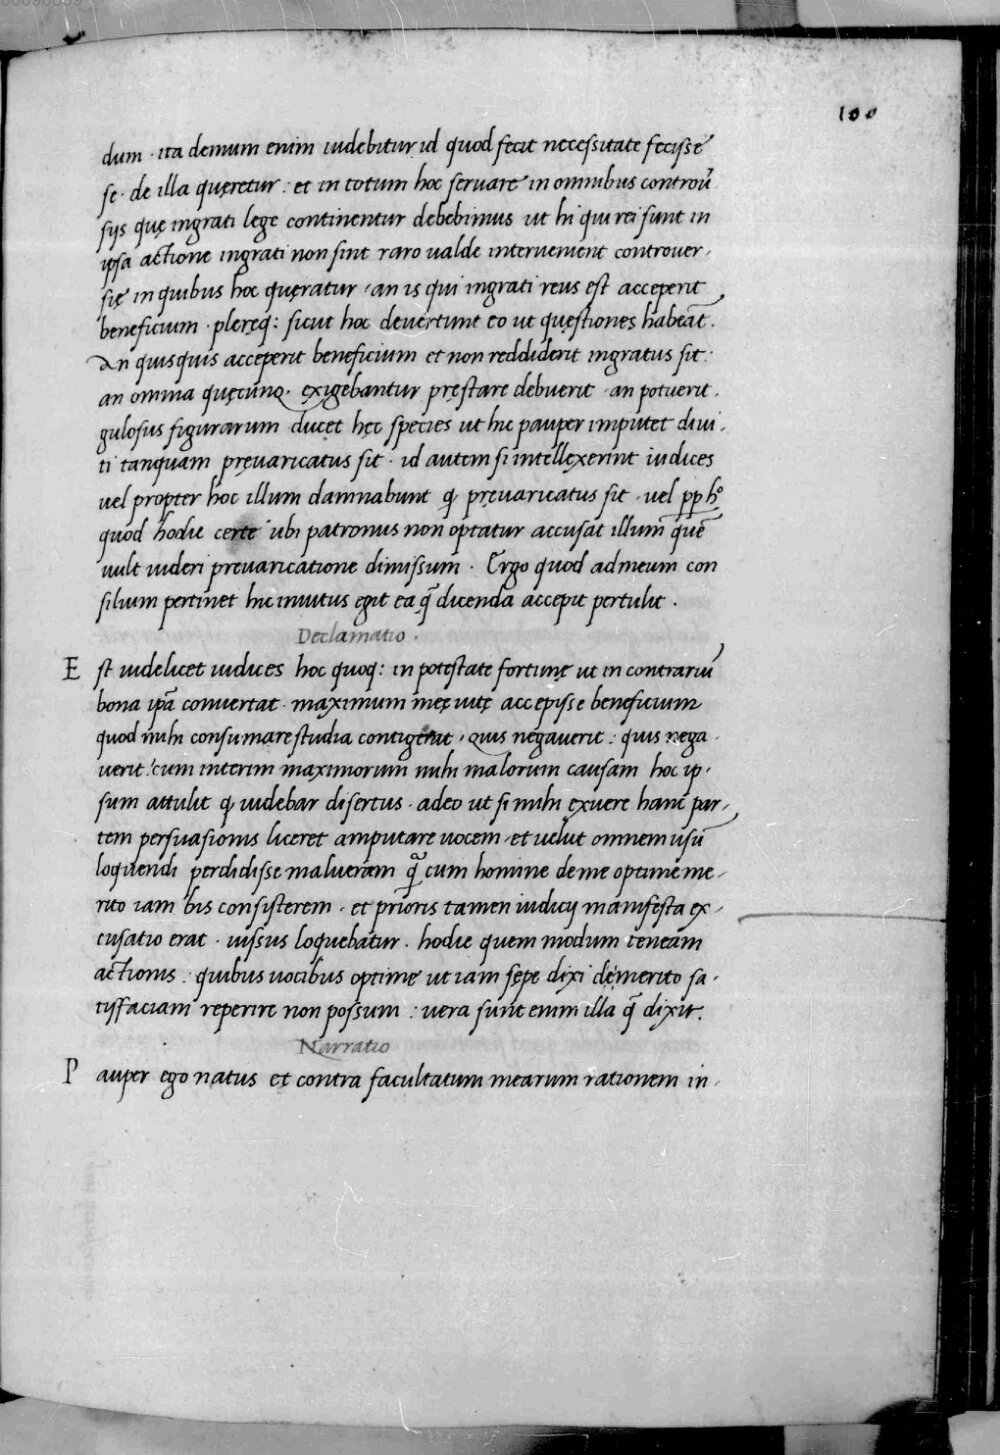 100
dum · ita demum enim iudebitur id quod fecit necessitate fecisse
se · de illa quęretur : et in totum hoc seruare in omnibus controu̅
sijs quę ingrati lege continentur debebimus ut hi qui rei sunt in
ipsa actione ingrati non sint raro ualde interuenient controuer-
się in quibus hoc quęratur · an is qui ingrati reus est acceperit
beneficium · plereq: sicut hoc deuertunt eo ut quęstiones habea̅t.
An quisquis acceperit beneficium et non reddiderit ingratus sit :
an omnia quęcunq. exigebantur pręstare debuerit · an potuerit.
gulosus figurarum ducet hęc species ut hic pauper imputet diui-
ti tanquam pręuaricatus sit · id autem si intellexerint iudices
uel propter hoc illum damnabunt q̨ pręuaricatus sit · uel pp̱ hº
quod hodie certe ubi patronus non optatur accusat illum que̅
uult uideri preuaricatione dimissum · Ergo quod ad meum con
silium pertinet hic inuitus egit ea q̅ dicenda accepit pertulit .
Declamatio .
Est uidelicet iudices hoc quoq: in potestate fortunę ut in contrariu̅
bona ip̅a conuertat · maximum meę uitę accepisse beneficium
quod mihi consumare studia contigerat · quis negauerit : quis nega-
uerit : cum interim maximorum mihi malorum causam hoc ip-
sum attulit q̨ uidebar disertus · adeo ut si mihi exuere hanc par-
tem persuasionis liceret amputare uocem · et uelut omnem usu̅
loquendi perdidisse malueram q̅ cum homine de me optime me-
rito iam bis consisterem · et prioris tamen iudicij manifesta ex-
cusatio erat · iussus loquebatur · hodie quem modum teneam
actionis : quibus uocibus optime ut iam sępe dixi demerito sa-
tisfaciam reperire non possum : uera sunt enim illa q̅ dixit.
Narratio
Pauper ego natus et contra facultatum mearum rationem in-